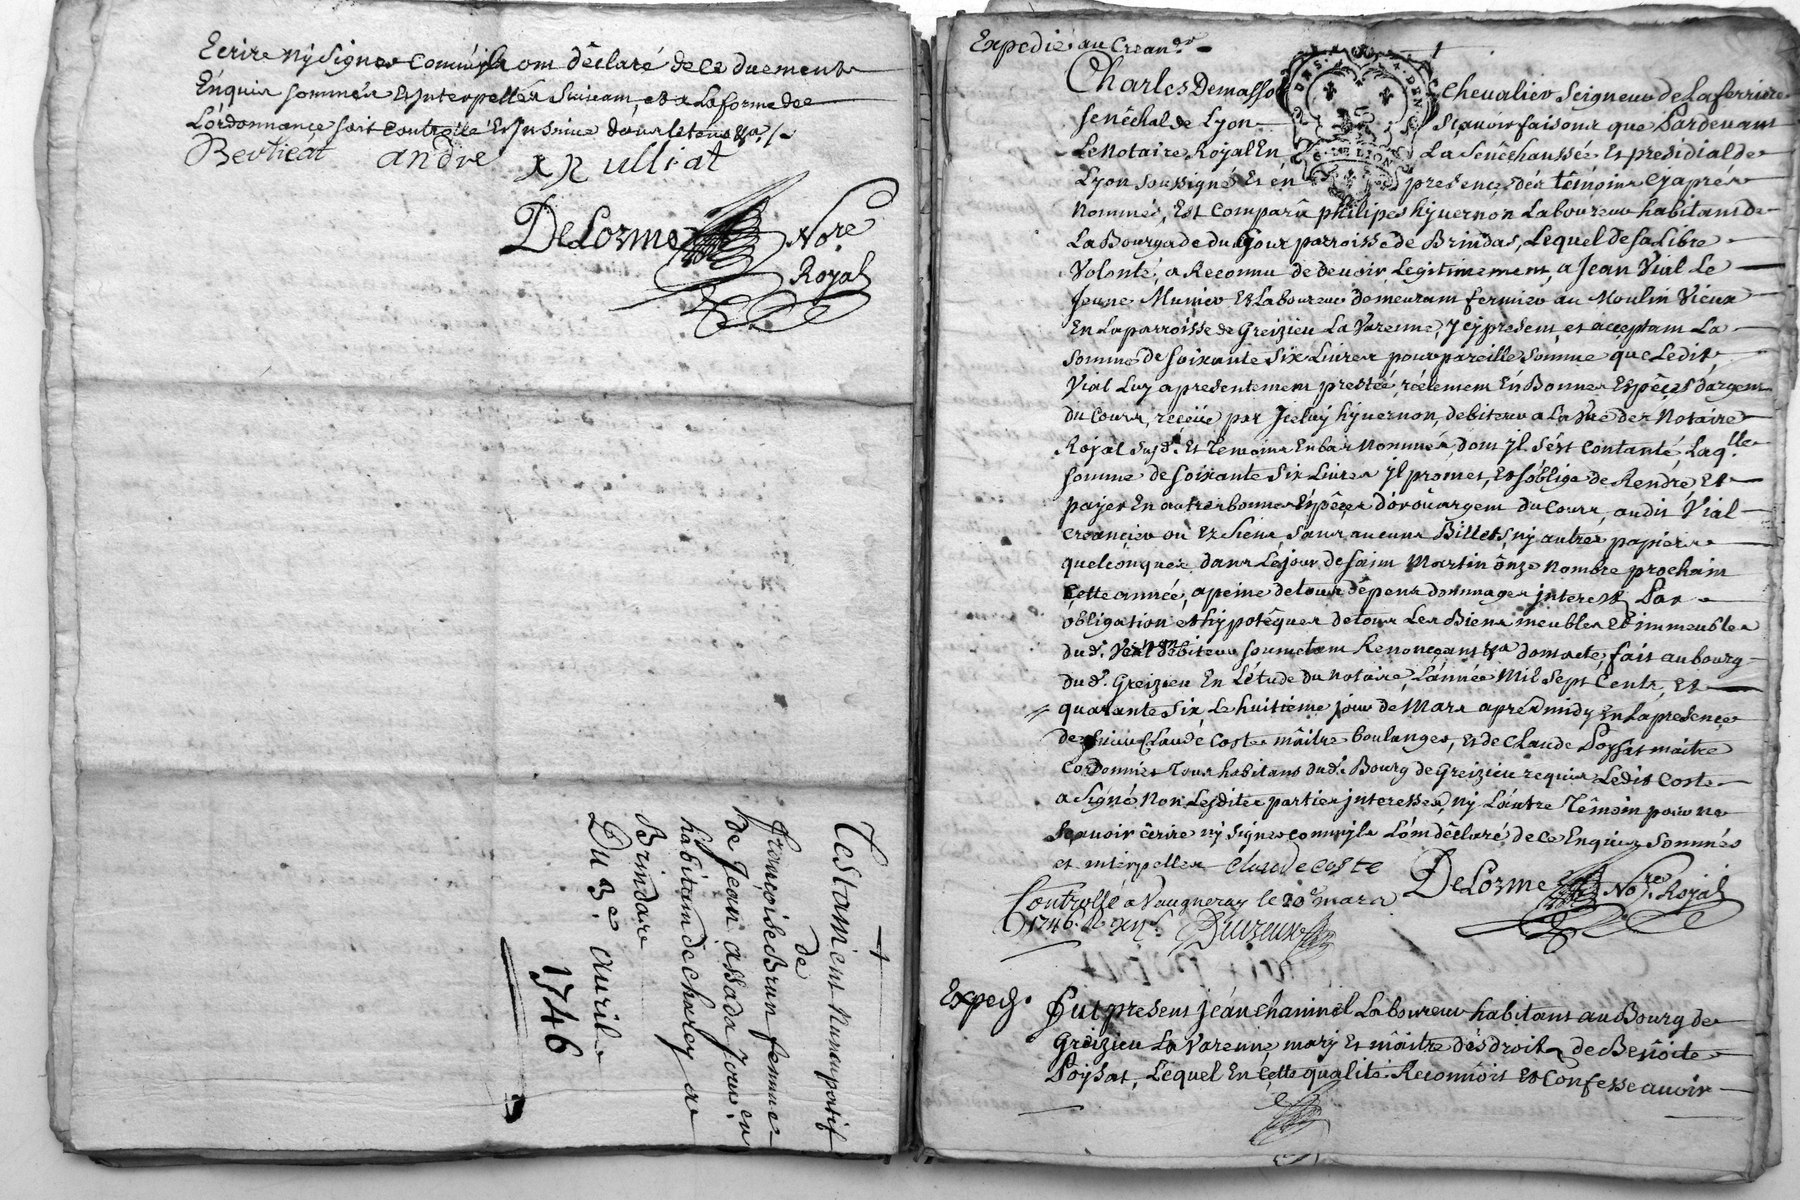 Ecrire ny signer comme jls ont déclaré de ce duement
Enquis sommés Et Interpellés suivant, et a La forme de
L'ordonnance soit controllé Et Insinué dans le tems &a./.
Berlieat andré pulliat
DeLorme No.re
Royal
+
Testament Nuncupatif
de
françoise Brun femme
de Jean assada Jour.
habitant de charley
Brindare
Du 3.e auril
1746
Expedié au Crean.er
Charles Demasso Chevalier Seigneur de La ferriere
senéchal de Lyon Scauoir faisons que Pardeuant
Le Notaire Royal En La Senéchaussée Et presidial de
Lyon soussigné Et en presence des têmoins Cy aprés
Nommés, Est Comparû philipes hyuernon Laboureur habitant de
La Bourgade du Gour parroisse de Brindas, Lequel de sa Libre
Volonté, a Reconnu de deuoir Legitimement, a Jean Vial Le
Jeune Munier Et Laboureur demeurant fermier au Moulin Vieux
En La parroisse de Greizieu La Varenne, Jcy present et acceptant La
somme de soixante six Liures pour pareille somme que Ledit
Vial Luy a presentement prestéé réélement En Bonnes Espêces d'argent
du Cours, recéüe par Jceluy hyuernon, debiteur a La vüe des Notaire
Royal susd. Et Temoins En bas Nommés, dont jl s'ést Contanté, Laq.lle
somme de soixante six Liures jl promet, Et s'oblige de Rendre Et
payer En autres bonnes Espêces d'or ou argent du Cours, audit Vial
Creancier ou Ez siens, sans aucuns Billets, ny autres papiers
quelconques dans Le jour de saint Martin ônze Nombre prochain
Cette année, a peine de tous dêpens dommages interest, Par
obligation et hypotêques de tous Les Biens meubles Et immeubles
dud. debiteur soumettant Renonçant &a dont acte, fait au bourg
dud. Greizieu En L'étude du Notaire, L'année Mil Sept Cents, Et
quarante six, Le huitiême jour de Mars aprés midy En La presence
de sieur Claude Coste mâitre boulanger, et de Claude Poysat maitre
Cordonnier Tous habitans dud. Bourg de Greizieu requis Ledit Coste
a Signé Non Lesdites parties interessés, ny L'autre Têmoin pour ne
scauoir êcrire ny signer comme jls L'ont dêclaré de ce Enquis Sommés
et interpellés claude coste
DeLorme No.re Royal
Controllé a Vaugneray le 20.e mars
1746. R. xij s.
Exped.
fut present Jean Chaminel Laboureur habitant au Bourg de
Greizieu La Varenne mary Et mâitre des droits de Benoite
Poysat, Lequel En Cette qualité Reconnoit Et Confesse auoir